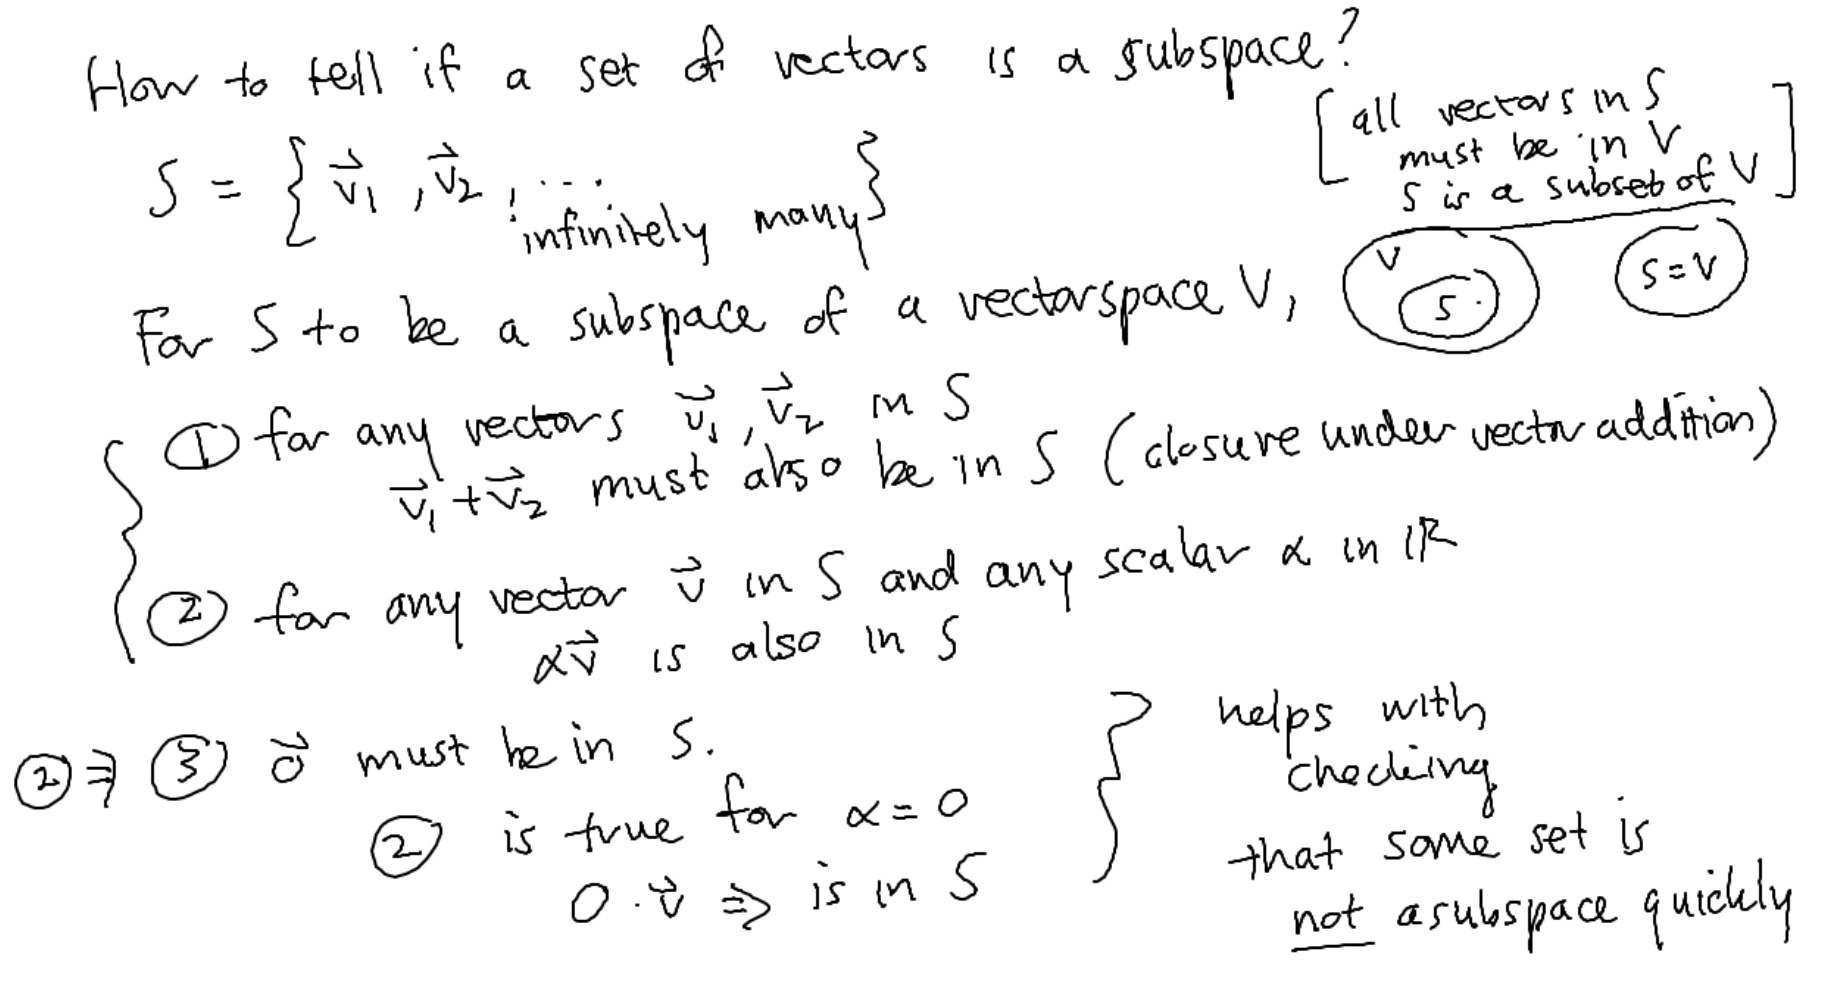 How to tell if a set of vectors is a subspace?
[all vectors in S
must be in V
S is a subset of V]
S = {v⃗₁, v⃗₂, ...
infinitely many}
V
S
S=V
For S to be a subspace of a vectorspace V,
① for any vectors v⃗₁, v⃗₂ in S
v⃗₁+v⃗₂ must also be in S (closure under vector addition)
② for any vector v⃗ in S and any scalar α in ℝ
αv⃗ is also in S
②⇒ ③ 0⃗ must be in S.
② is true for α=0
0·v⃗ ⇒ is in S
helps with
checking
that some set is
not a subspace quickly